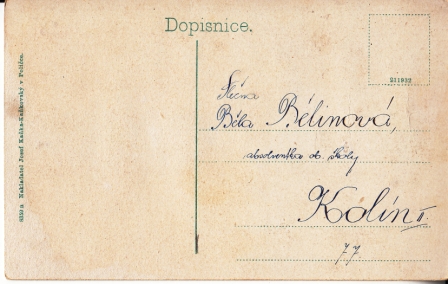 Dopisnice.
231912
6250 n. Nakladatel Josef Kačka-Kačkovský v Poličce.
Slečna
Běla Bélinová,
absolventka ob. školy
Kolín II.
77